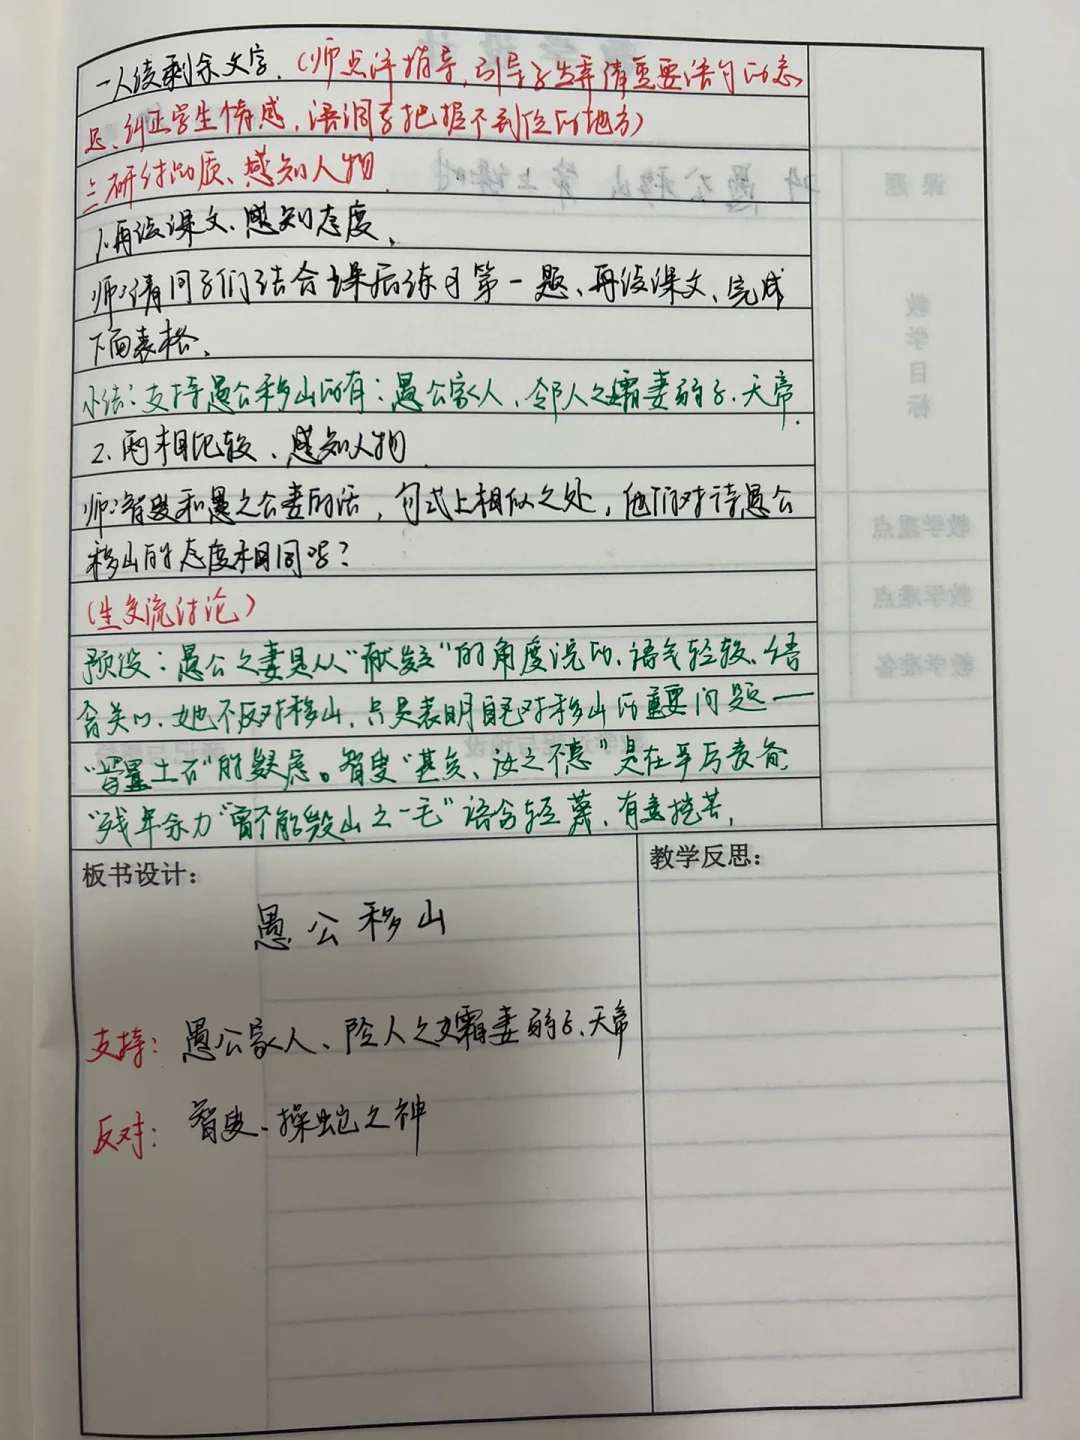 一人读剩余文字。（师点评指导，引导学生弄清重要语句的意
思、纠正学生情感、语调等把握不到位的地方）
三研讨品质、感知人物
1.再读课文、感知态度。
师：请同学们结合课后练习第一题、再读课文、完成
下面表格。
小结：支持愚公移山的有：愚公家人、邻人之孀妻弱子、天帝
2.两相比较、感知人物
师：智叟和愚之公妻的话，句式上相似之处，他们对待愚公
移山的态度相同吗？
（生交流讨论）
预设：愚公之妻是从“献疑”的角度说的、语气轻较、结
含关心、她不反对移山、只是表明自己对移山的重要问题一
“焉置土石”的疑虑。智叟“甚矣、汝之不惠”是在
“残年余力”曾不能毁山之一毛”语含轻蔑、有意挖苦，
板书设计：
愚公移山
支持：愚公家人、人之孀妻弱子、天帝
反对：智叟、操蛇之神
教学反思：
课题
愚公移山 第
教学目标
教学重点
教学难点
教学准备